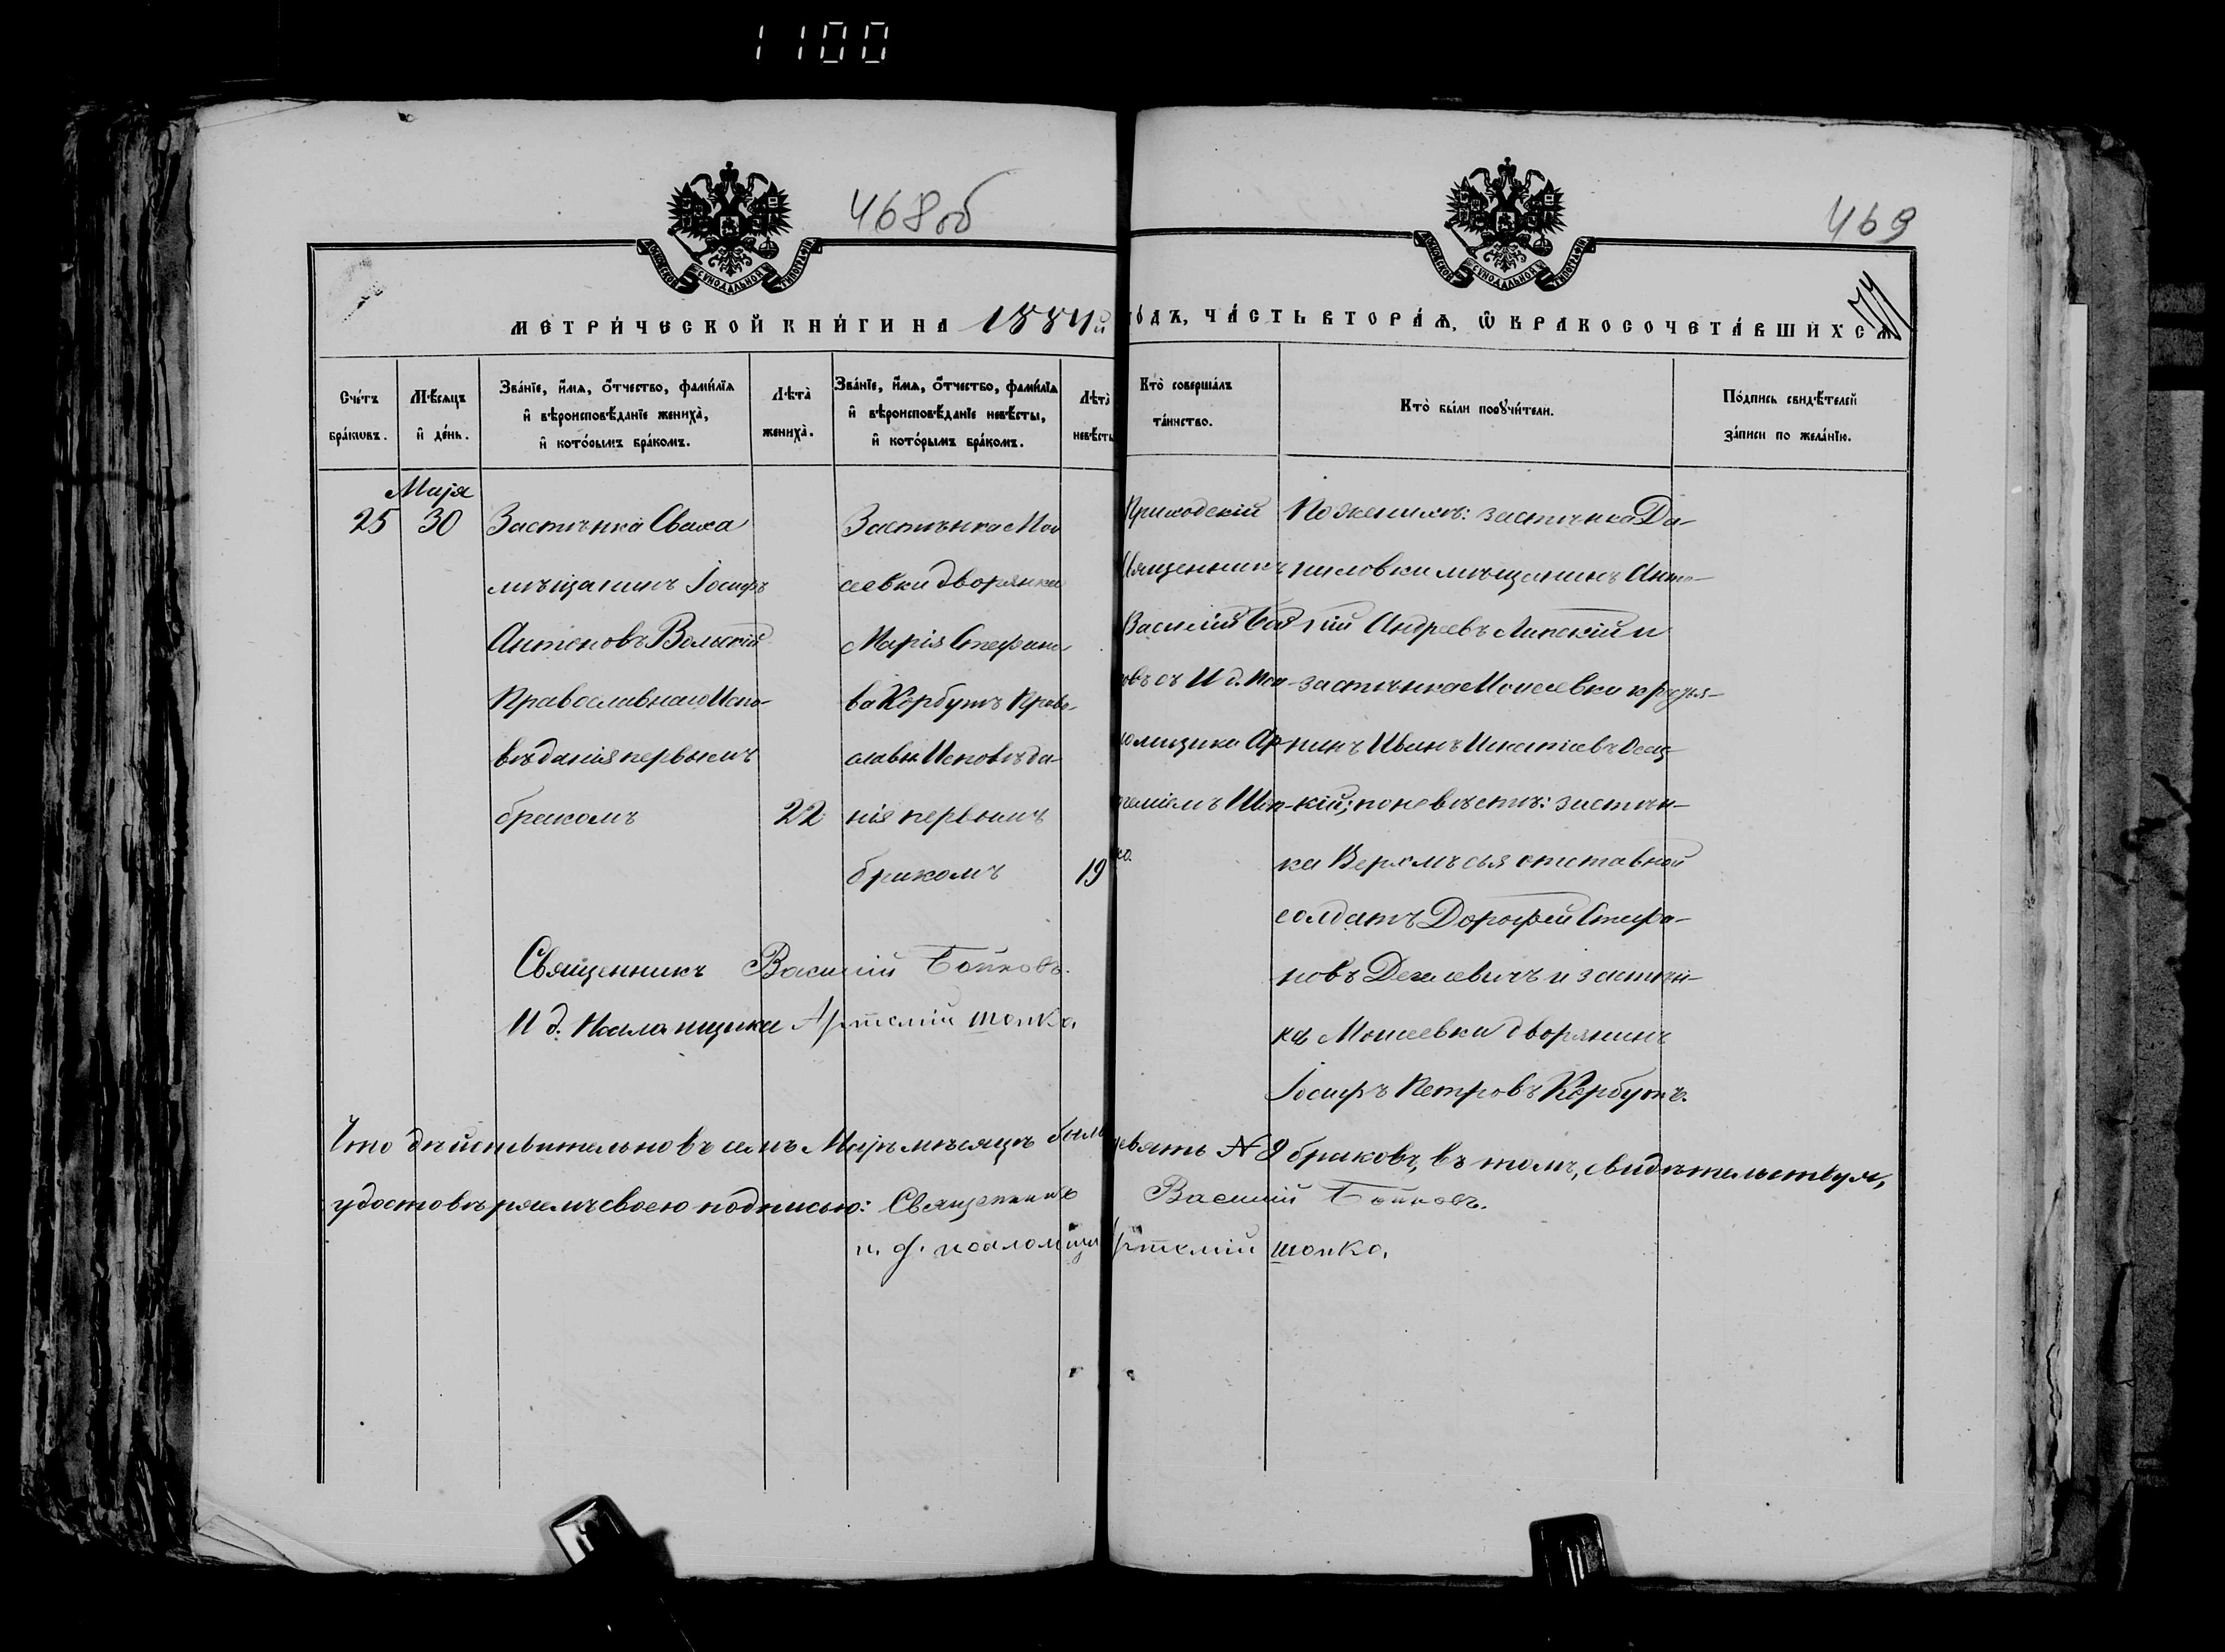 1100
468 об
469
МОСКОВСКОЙ СУНОДАЛЬНОЙ ТИПОГРАФІИ
МОСКОВСКОЙ СУНОДАЛЬНОЙ ТИПОГРАФІИ
МЕТРИ́ЧЕСКОЙ КНИ́ГИ НА 1884й го́дъ, ЧА́СТЬ ВТОРА́Ѧ, Ѽ БРАКОСОЧЕТА́ВШИХСѦ
Сче́тъ бра́кѡвъ.
Мѣ́сяцъ и҆ де́нь.
Зва́нїе, и҆́мя, ѻ҆́тчество, фами́лїя
и҆ вѣроисповѣ́данїе жениха̀,
и҆ кото́рымъ бра́комъ.
Лѣта̀ жениха̀.
Зва́нїе, и҆́мя, ѻ҆́тчество, фами́лїя
и҆ вѣроисповѣ́данїе невѣ́сты,
и҆ кото́рымъ бра́комъ.
Лѣта̀ невѣ́сты
Кто̀ соверша́лъ
та́инство.
Кто̀ бы́ли порꙋчи́тели.
По́дпись свидѣ́телей
за́писи по жела́нїю.
Маія
25
30
Застѣнка Сваха
мѣщанинъ Іосифъ
Антоновъ Вольскій
Православнаго Испо-
вѣданія первымъ
бракомъ
22
Застѣнка Мои
сеевки дворянка
Марія Стефано
ва Корбутъ Право-
славн Исповѣда-
нія первымъ
бракомъ
19
Приходскій
Священникъ
Василій Бой
ковъ съ И д. Пса
ломщика Ар
теміемъ Шоп-
ко.
По женихѣ: застѣнка Да-
ниловки мѣщанинъ Анто-
ній Андреевъ Липскій и
застѣнка Моисеевки крестья-
нинъ Иванъ Игнатіевъ
кій; по невѣстѣ: застѣн-
ка Верхмѣсья отставной
солдатъ Дорофей Стефа-
новъ и застѣн-
ка Моисеевки дворянинъ
Іосифъ Петровъ Корбутъ.
Священникъ Василій Бойковъ.
И д. Псаломщика Артемій Шопко.
Что дѣйствительно въ семъ Маіѣ мѣсяцѣ было девять № 9 браковъ, въ томъ, свидѣтельствуя,
удостовѣряемъ своею подписью: Священникъ Василій Бойковъ.
и. д. псаломщ Артемій Шопко.